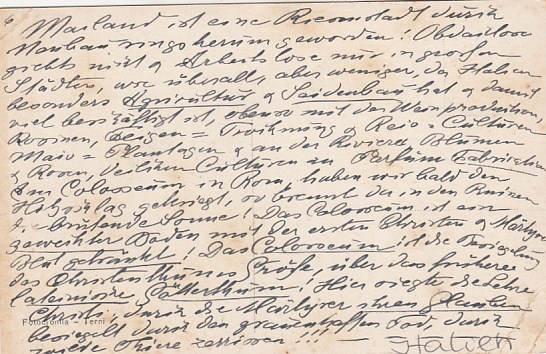 6 Mailand ist eine Riesenstadt durch
Neubau, rings herum geworden! Obdachlose
giebts nicht & Arbeitslose nur in großen
Städten, wie überall, aber weniger, da Italien
besonders Agricultur & Seidenbau hat & damit
viel beschäftigt ist, ebenso mit der Wein production,
Rosinen, Feigen = Trocknung & Reis = Culturen
Mais = Plantagen & an der Riviera Blumen
& Rosen, Veilchen Culturen zu Parfüm Fabrication
Im Colosseum in Rom, haben wir bald den
Hitzschlag gekriegt, so brennt da in den Ruinen
die brütende Sonne! Das Colosseum ist ein
geweihter Boden mit der ersten Christen & Märtyrer
Blut getränkt! Das Colosseum ist die Besiegelung
des Christenthumes Größe, über das frühere
Götterthum! Hier siegte die Lehre
Christi, durch die Märtyrer ihren Glauben
besiegelt durch den grauenhaften Tod, durch
wilde Tiere zerrissen!!!
Fotocromia - Terni
Italien